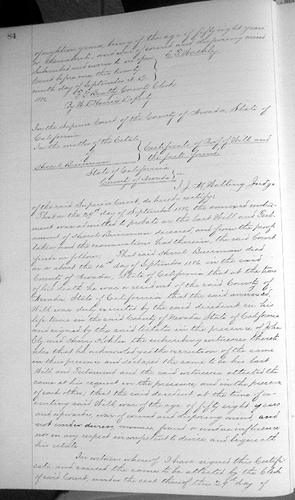 84
of executing same being of the age of fifty eight years
Subscribed and sworn to
ninth day of September A.D.
County Clerk
In the Superior Court of the County of Nevada, State of
California.
In the matter of the Estate
of
Certificate of Proof of Will and
the facts found
State of California
County of Nevada
Judge
of the said Superior Court, do hereby certify:
That on the 29th day of September 1882 the annexed instru-
ment was admitted to probate as the last Will and Test-
ament of deceased and from the proof
taken and the examination had therein, the said Court
finds as follows. That said
on or about the 16th day of September 1882 in the said
County of Nevada, State of California that at the time
of his death he was a resident of the said County of
Nevada State of California that the said annexed
Will was duly executed by the said decedent in his
life time in the said County of Nevada State of California
and signed by the said testator in the presence of John
and the subscribing witnesses thereto
also that he acknowledged the execution of the same
in their presence and declared the same to be his last
Will and Testament and the said witnesses attested the
same at his request in his presence and in the presence
of each other, that the said decedent at the time of ex-
ecuting said Will was of the age of fifty eight years
and upwards, was of sound and disposing mind and
not under duress menace fraud or undue influence
nor in any respect incompetent to devise and bequeath
his estate.
In witness whereof I have signed this Certifi-
cate and caused the same to be attested by the Clerk
of said Court, under the seal thereof this 29th day of